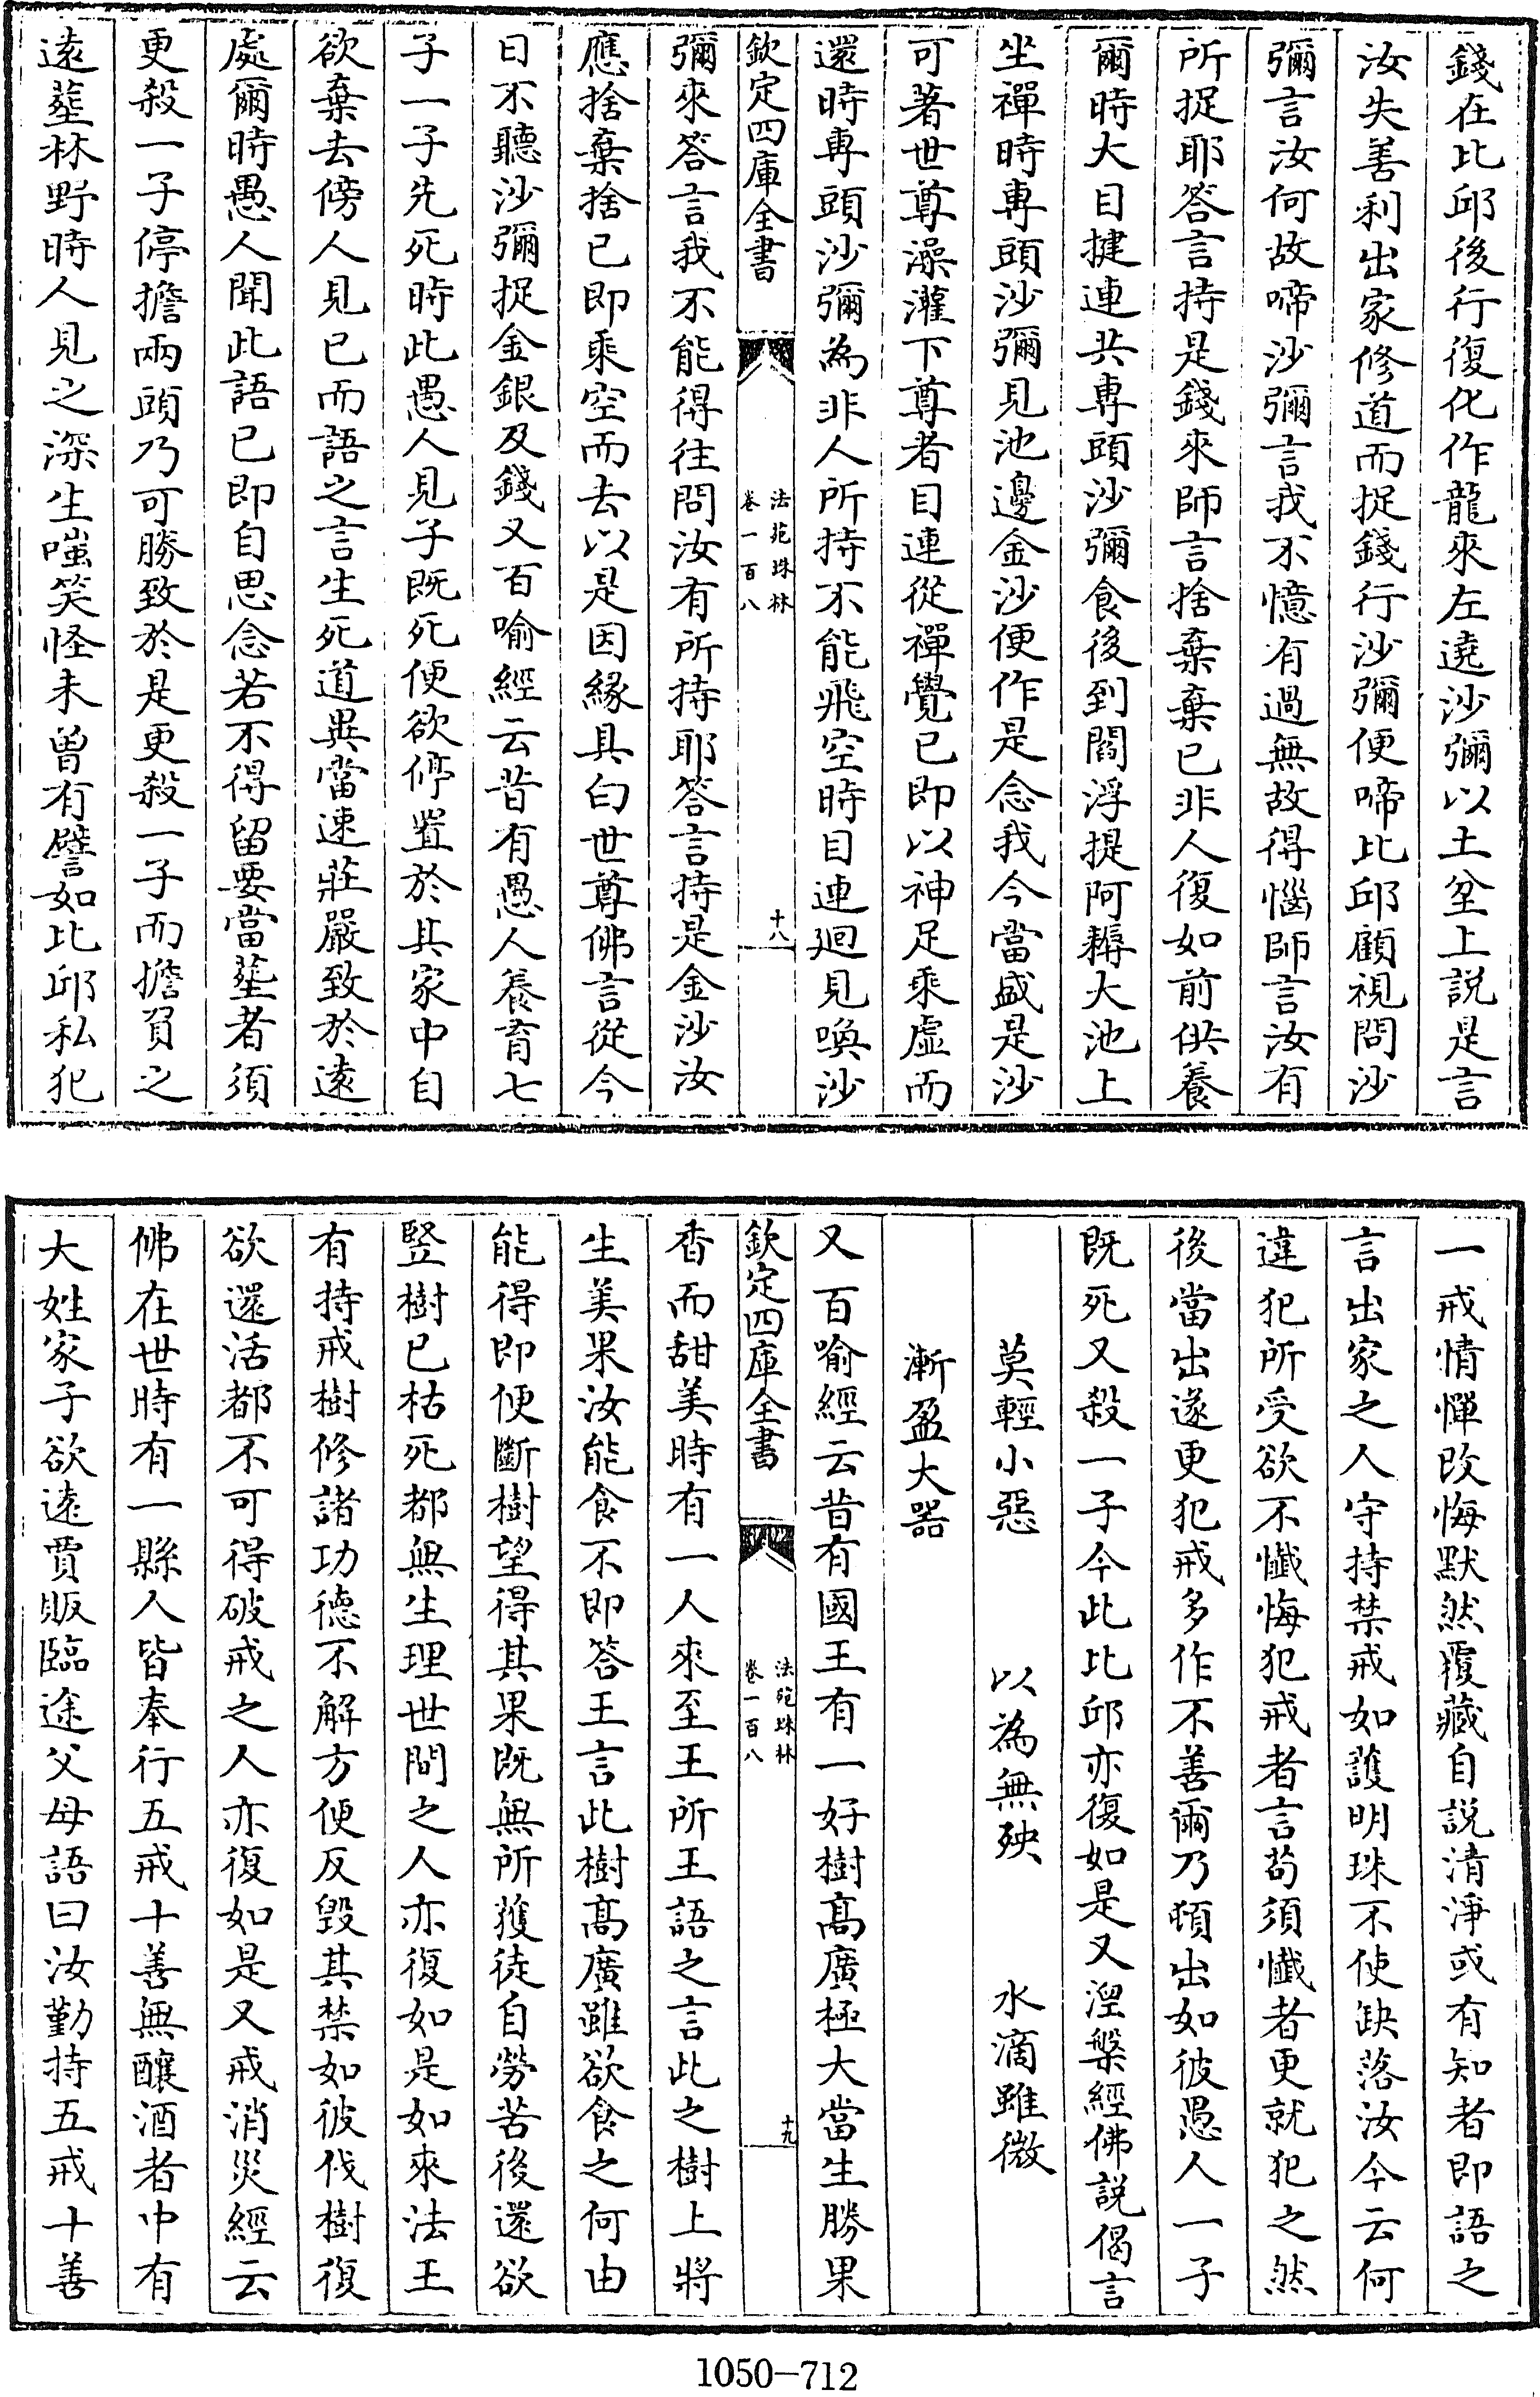 錢在比邱後行復化作龍來左遶沙彌以土坌上説是言
汝失善利出家修道而捉錢行沙彌便啼比邱顧視問沙
彌言汝何故啼沙彌言我不憶有過無故得惱師言汝有
所捉耶答言持是錢來師言捨棄棄已非人復如前供養
爾時大目揵連共專頭沙彌食後到閻浮提阿耨大池上
坐禪時專頭沙彌見池邊金沙便作是念我今當盛是沙
可著世尊澡灌下尊者目連從禪覺已即以神足乘虛而
還時專頭沙彌為非人所持不能飛空時目連迴見喚沙
欽定四庫全書
法苑珠林
卷一百八
十八
彌來答言我不能得往問汝有所持耶答言持是金沙汝
應捨棄捨已即乘空而去以是因緣具白世尊佛言從今
日不聽沙彌捉金銀及錢又百喻經云昔有愚人養育七
子一子先死時此愚人見子既死便欲停置於其家中自
欲棄去傍人見已而語之言生死道異當速莊嚴致於遠
處爾時愚人聞此語已即自思念若不得留要當塟者須
更殺一子停擔兩頭乃可勝致於是更殺一子而擔負之
遠塟林野時人見之深生嗤笑怪未曾有譬如比邱私犯
一戒情憚改悔默然覆藏自説清淨或有知者即語之
言出家之人守持禁戒如護明珠不使缺落汝今云何
違犯所受欲不懺悔犯戒者言苟須懺者更就犯之然
後當出遂更犯戒多作不善爾乃頓出如彼愚人一子
既死又殺一子今此比邱亦復如是又湼槃經佛説偈言
莫輕小惡　以為無殃　水滴雖微
漸盈大器
又百喻經云昔有國王有一好樹高廣極大當生勝果
欽定四庫全書
法苑珠林
卷一百八
十九
香而甜美時有一人來至王所王語之言此之樹上將
生美果汝能食不即答王言此樹高廣雖欲食之何由
能得即便斷樹望得其果既無所獲徒自勞苦後還欲
竪樹已枯死都無生理世間之人亦復如是如來法王
有持戒樹修諸功德不解方便反毀其禁如彼伐樹復
欲還活都不可得破戒之人亦復如是又戒消災經云
佛在世時有一縣人皆奉行五戒十善無釀酒者中有
大姓家子欲遠賈販臨途父母語曰汝勤持五戒十善
1050-712